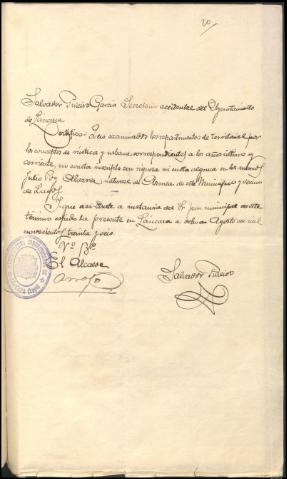 20.
Salvador Piñeiro García Secretario accidental del Ayuntamiento
de Láncara
Certifico: Que examinados los repartimientos de Territorial por
los conceptos de rústica y urbana correspondientes a los años último y
corriente, no resulta inscrito con riqueza ni cuota alguna en los mismos
Julio Poy Álvarez, natural de de este Municipio y vecino
de Lagos.
Y que así conste a instancia del Sr juez municipal de este
término expido la presente en Láncara a ocho de Agosto de mil
novecientos treinta y seis.
Vº Bº
El Alcalde
Salvador Piñeiro